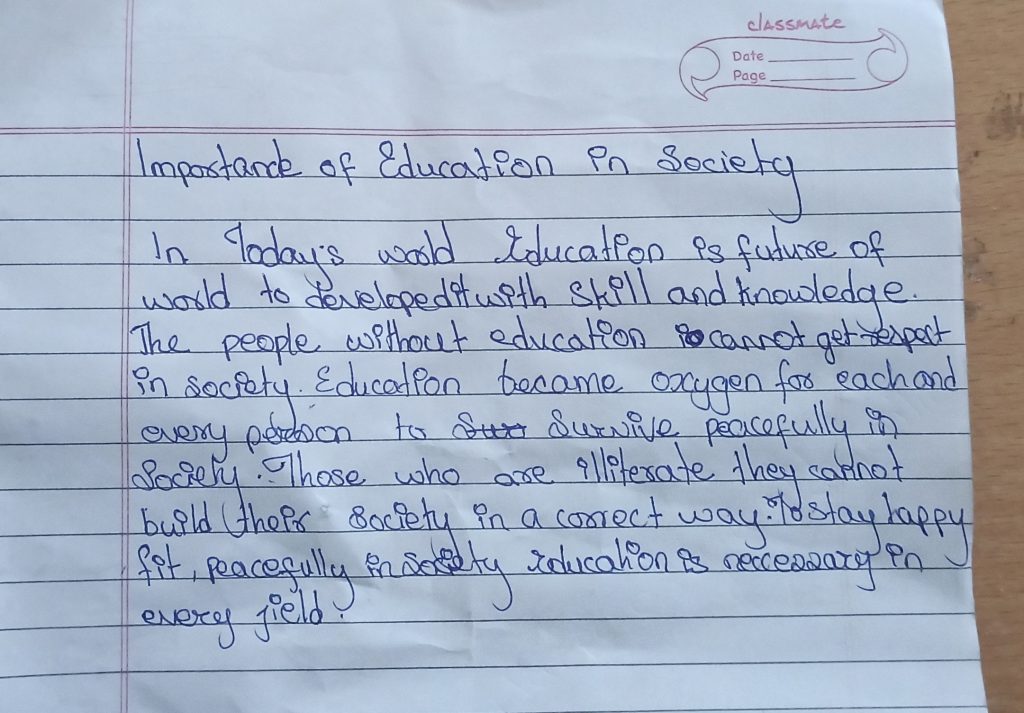 classmate
Date
Page
Importance of Education in Society
In Today's world Education is future of
world to developed it with skill and knowledge.
The people without education cannot get respect
in society. Education became oxygen for each and
every person to survive peacefully in
Society. Those who are illiterate they cannot
build their society in a correct way. To stay happy
fit, peacefully in society education is neccessary in
every field.